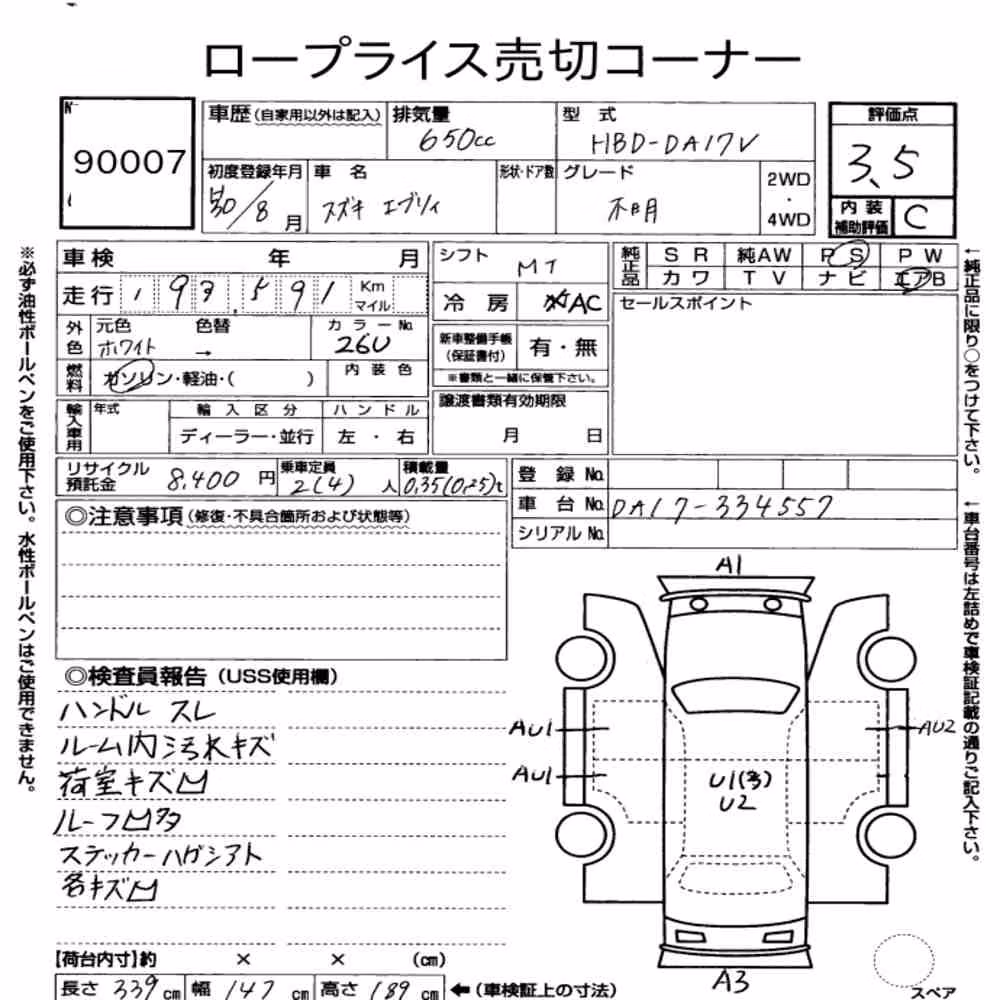 ロープライス売切コーナー
90007
車歴 (自家用以外は記入) 排気量 650cc 型式 HBD-DA17V
評価点 3.5
初度登録年月 30/8月 車名 スズキ エブリィ 形状・ドア数 グレード 不明 2WD・4WD
内装補助評価 C
車検 年 月
シフト MT
純正品 SR 純AW PS PW
カワ TV ナビ エアB
走行 193,591 Km マイル
冷房 AC
セールスポイント
外色 元色 ホワイト 色替 → カラーNo. 26U
新車整備手帳(保証書付) 有・無
※書類と一緒に保管下さい。
燃料 ガソリン・軽油・( ) 内装色
譲渡書類有効期限
月 日
輸入車用 年式 輸入区分 ハンドル
ディーラー・並行 左・右
リサイクル預託金 8,400円 乗車定員 2(4)人 積載量 0.35(0.25)t
登録No.
車台No. DA17-334557
シリアルNo.
◎注意事項 (修復・不具合箇所および状態等)
◎検査員報告 (USS使用欄)
ハンドル スレ
ルーム内汚れキズ
荷室キズ凹
ルーフ凹多
ステッカーハガシアト
各キズ凹
A1
AU1
AU2
AU1
U1(多)
U2
A3
スペア
【荷台内寸】約 × × (cm)
長さ 339cm 幅 147cm 高さ 189cm ←(車検証上の寸法)
※必ず油性ボールペンをご使用下さい。水性ボールペンはご使用できません。
←純正品に限り○をつけて下さい。
←車台番号は左詰めで車検証記載の通りご記入下さい。